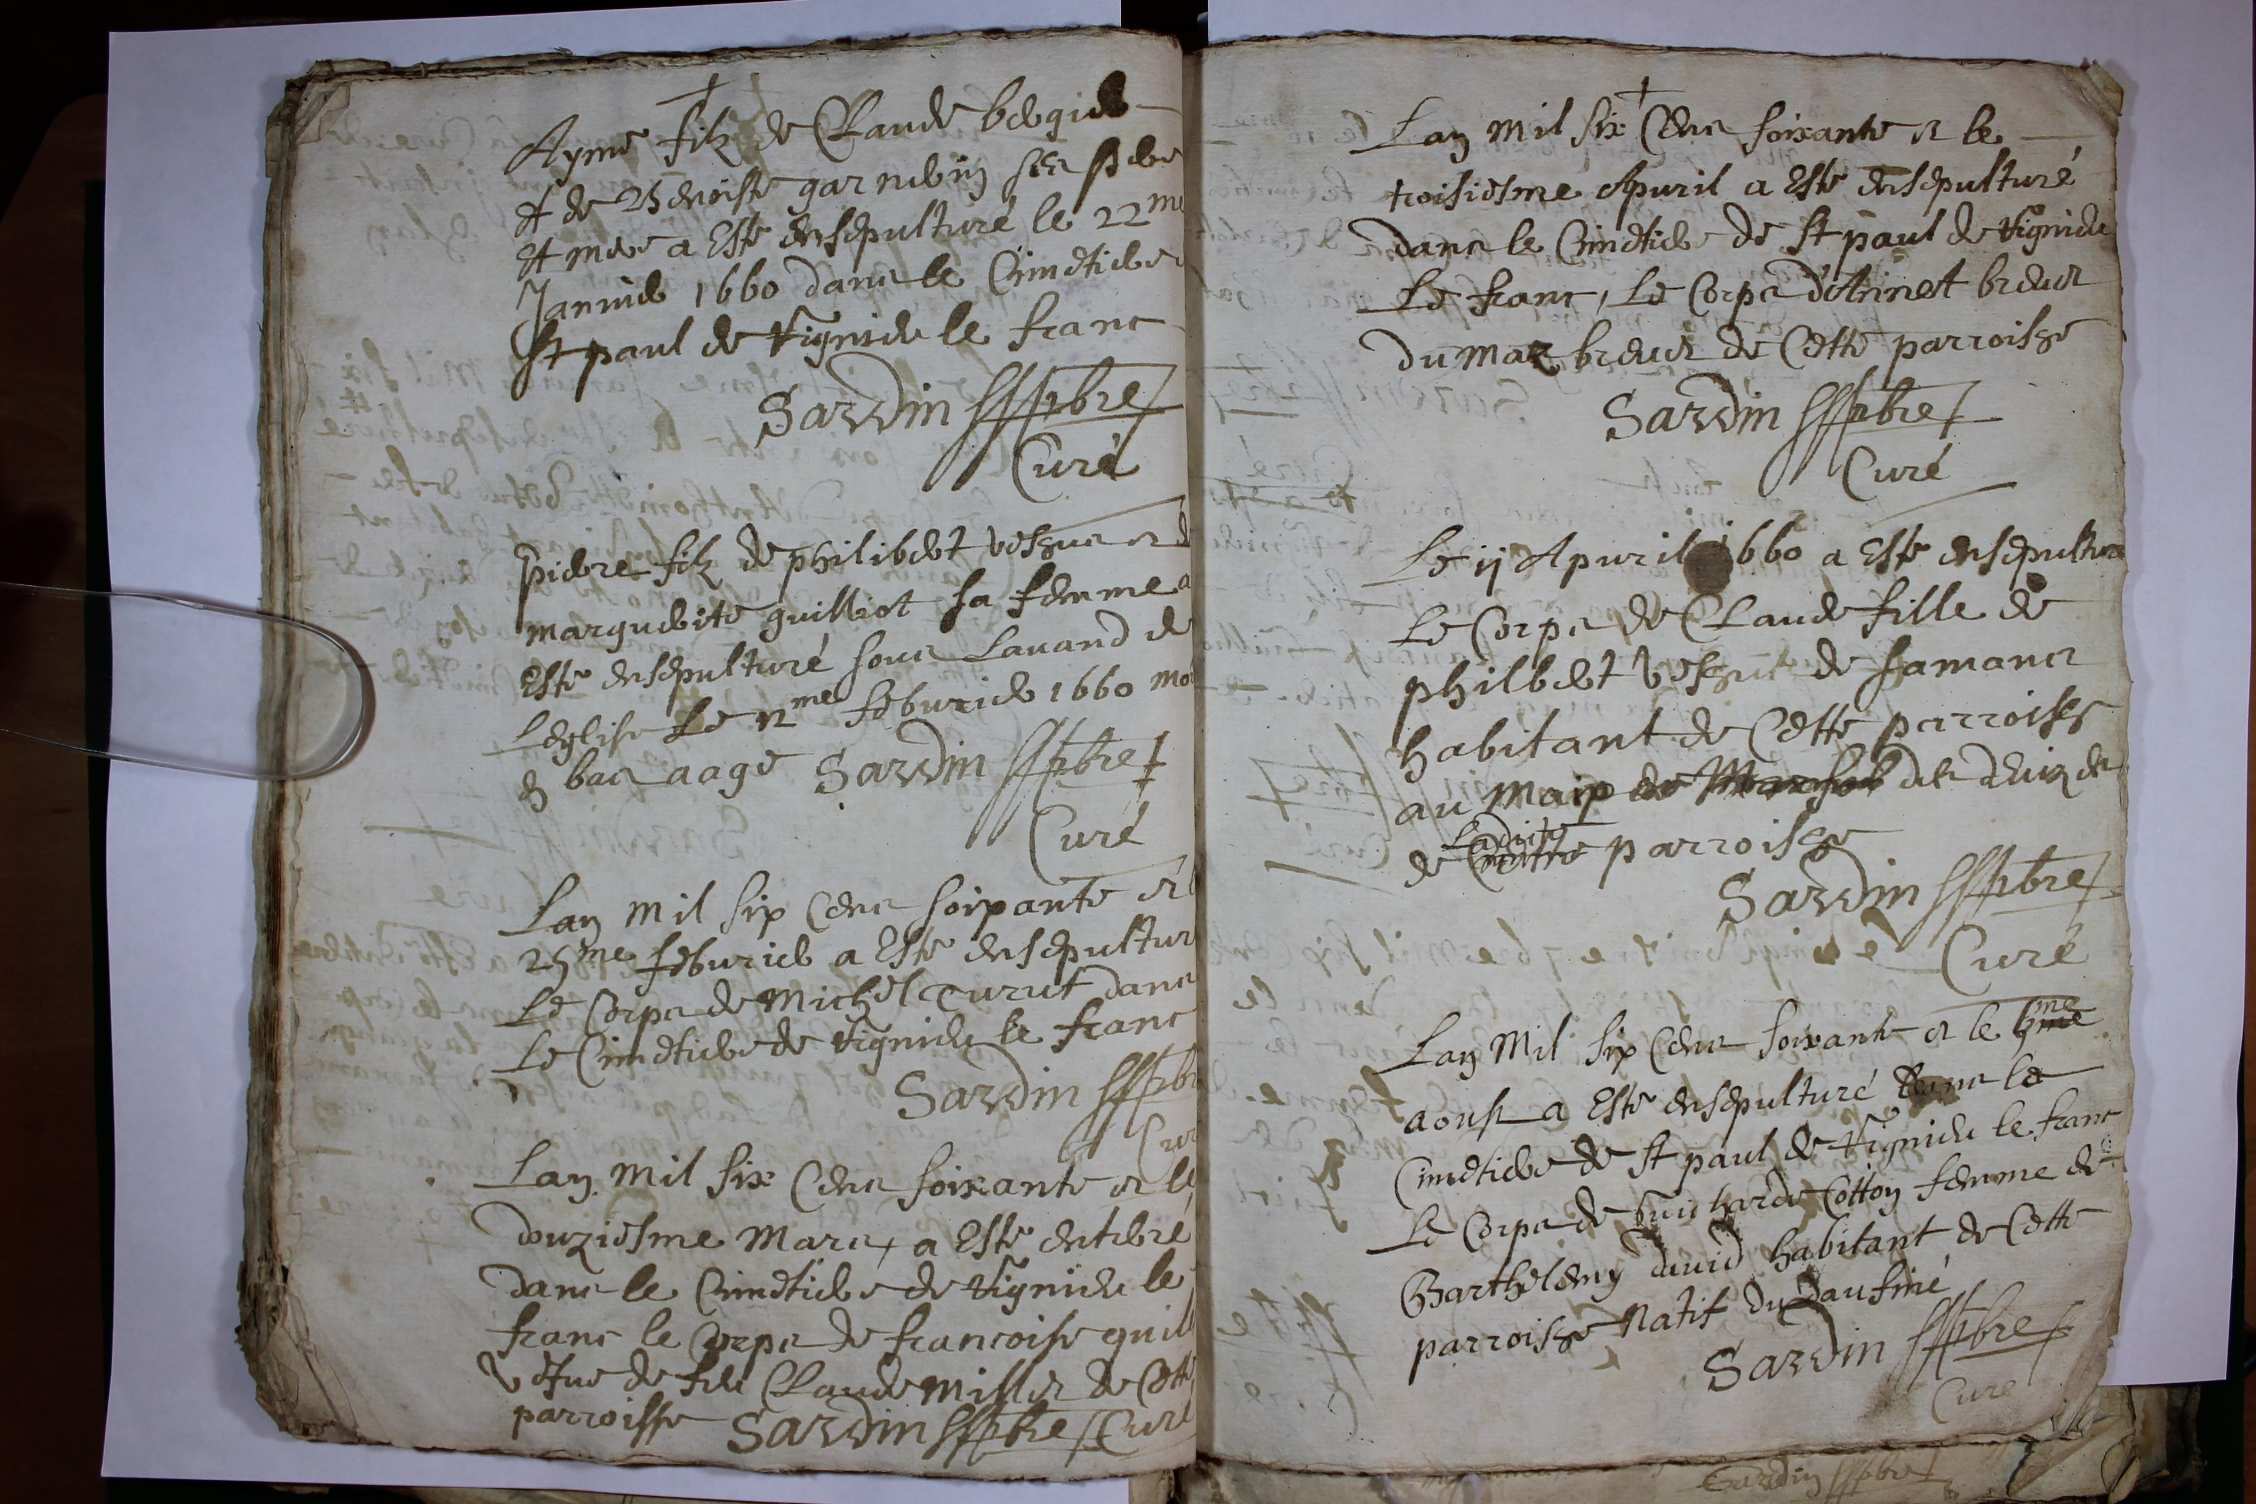 Aymé filz de Claude bergier
et de Benoiste garnier ses pere
et mere a Esté ensepulturé le 22me
Januier 1660 dans le Cimetiere
St paul de Vignieu le franc
Sardin pbre
Curé
pierre filz de philibert
marguerite guilliot sa femme a
Esté ensepulturé sous Lauand de
Leglise Le 12me feburier 1660
en bas aage Sardin pbre
Curé
Lan mil six cens soixante et
25me feburier a Esté ensepultur
Le Corps de Michel Turut dans
Le Cimetiere de Vignieu le franc
Sardin pbr
Cur
Lan mil six Cens soixante et le
douziesme Mars, a Esté enterré
dans le Cimetiere de Vignieu le
franc le Corps de francoise
vefue de feu Claude Millier de Cette
parroisse Sardin pbre Curé
Lan mil six Cens soixante et le
troisiesme Apuril a Esté ensepulturé
dans le Cimetiere de St paul de Vignieu
Le franc, Le Corps d'Annet breuet
du Maz breuet de Cette parroisse
Sardin pbre
Curé
Le ij Apuril 1660 a Esté ensepulturé
Le Corps de Claude fille de
philbert de
habitant de Cette parroisse
au
Ladite
de parroisse
Sardin pbre
Curé
Lan Mil six Cens soixante et le
aoust a Esté ensepulturé dans le
Cimetiere de St paul de Vignieu le franc
Le Corps de Guicharde Cotton femme de
Barthelemy dauid habitant de Cette
parroisse Natif du daufiné
Sardin pbre
Curé
Sardin pbre